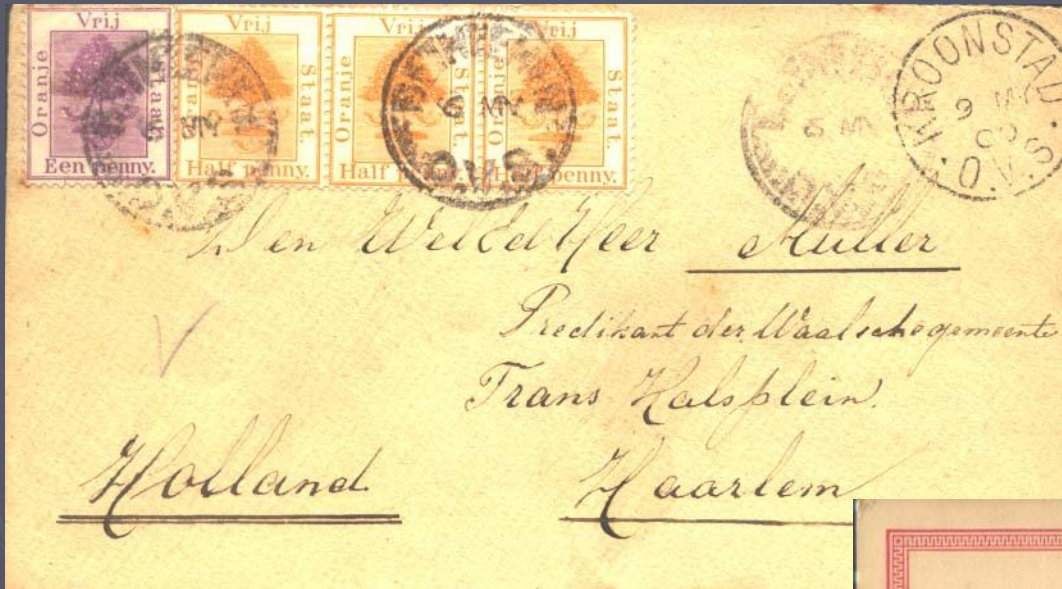 Vrij
Oranje
Staat.
Een penny.
Vrij
Oranje
Staat.
Half penny.
Vrij
Oranje
Staat.
Half penny.
Vrij
Oranje
Staat.
Half penny.
BETHLEHEM
5 MY
O.V.S.
KROONSTAD.
9 MY
O.V.S.
Den WelEd Heer Muller
Predikant der Waalsche gemeente
Frans Halsplein.
Holland Haarlem